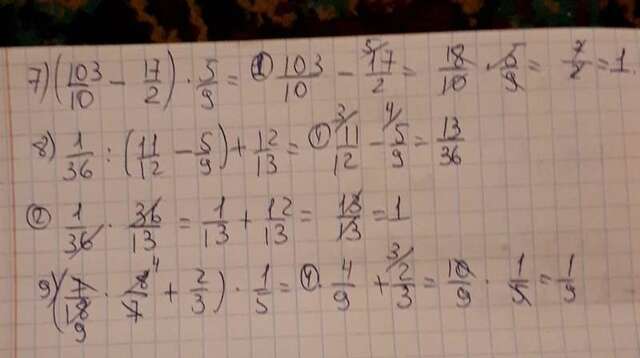 7) (103/10 − 17/2) · 5/9 = ① 103/10 − 5/17/2 = 18/10 · 5/9 = 2/2 = 1
8) 1/36 : (11/12 − 5/9) + 12/13 = ① 3/11/12 − 4/5/9 = 13/36
② 1/36 · 36/13 = 1/13 + 12/13 = 13/13 = 1
9) (7/18 9 · 8 4/7 + 2/3) · 1/5 = ① · 4/9 + 3/2/3 = 10/9 · 1/5 = 1/9